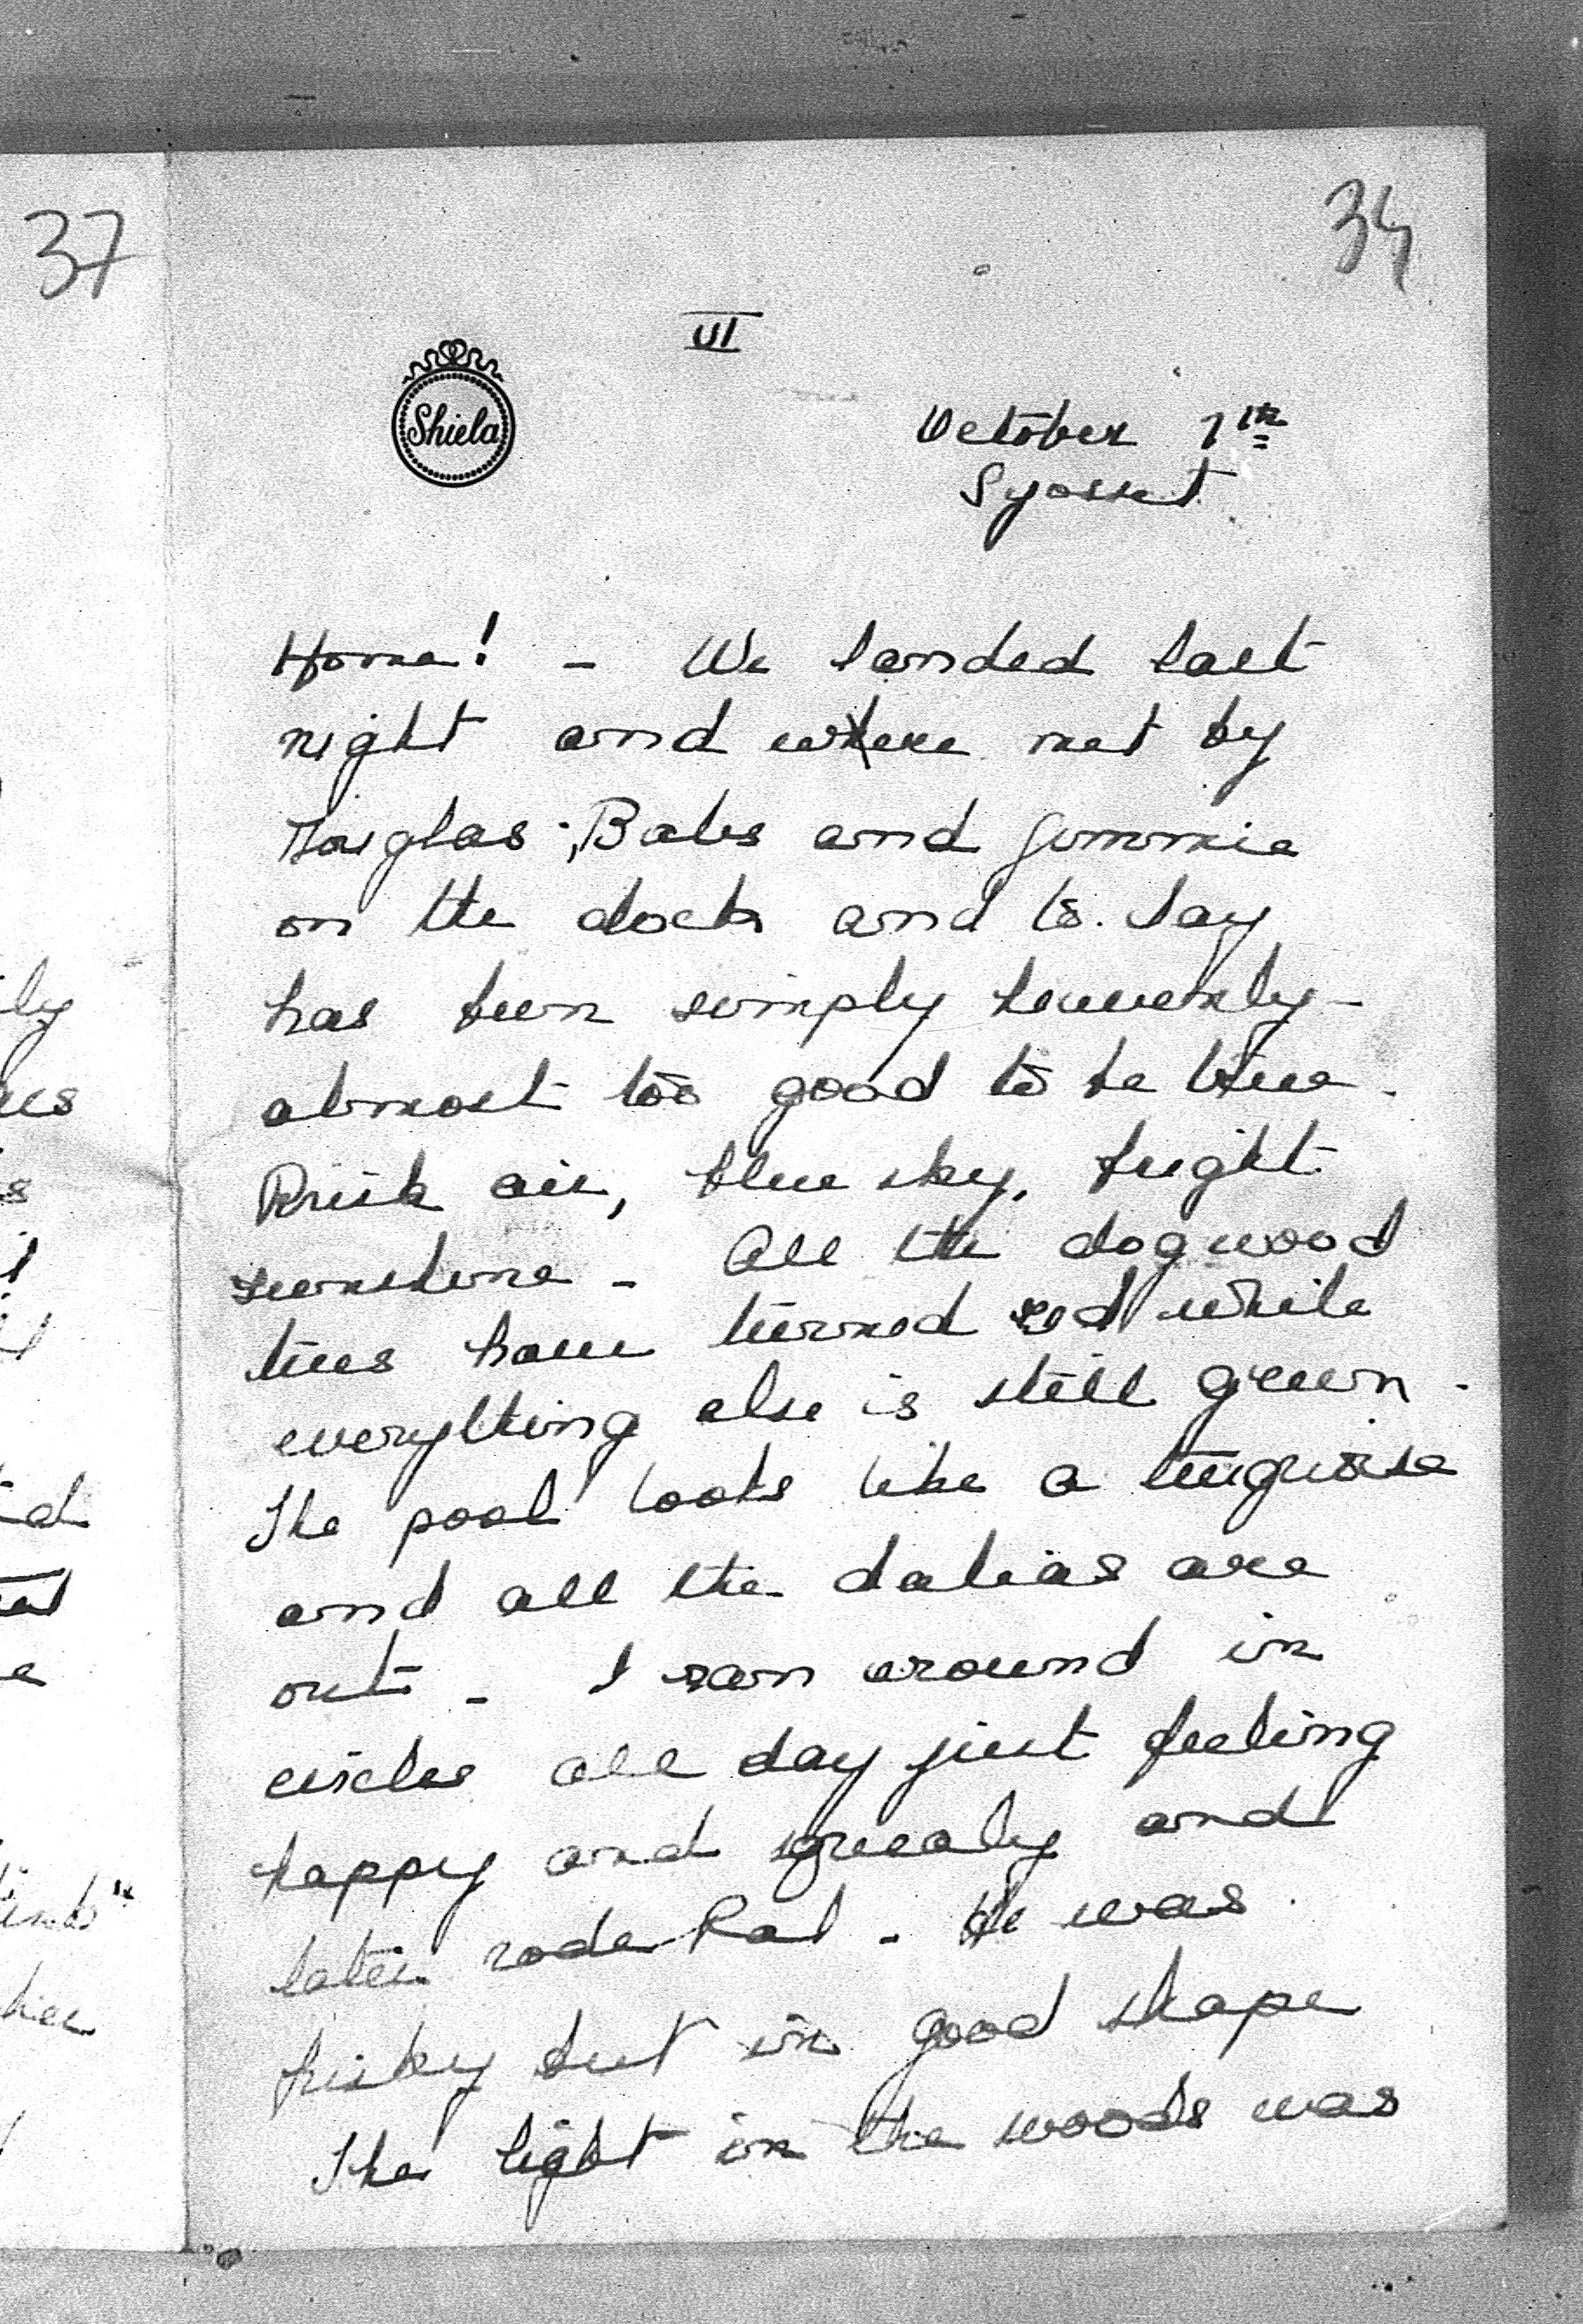 37
34
VI
Shiela
October 7th
Syosset
Home! - We landed last
night and were met by
Douglas, Babs and Jimmie
on the dock and to-day
has been simply heavenly -
almost too good to be true.
Brisk air, blue sky, bright
sunshine - All the dogwood
trees have turned red while
everything else is still green.
The pool looks like a turquoise
and all the dalias are
out - I ran around in
circles all day just feeling
happy and squealy and
later rode Pal - He was
frisky but in good shape
The light in the woods was